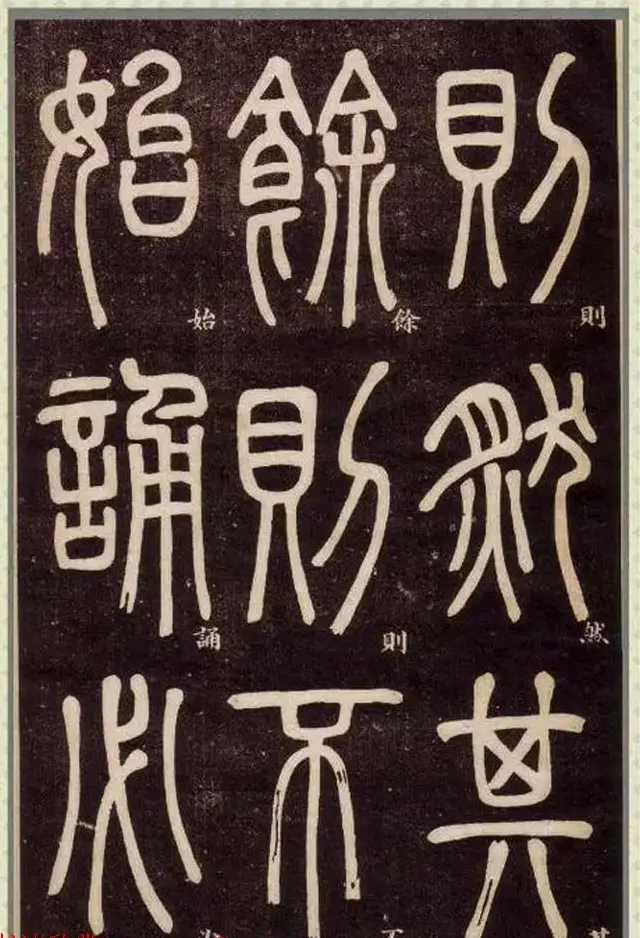 則然其
餘則不
始誦必